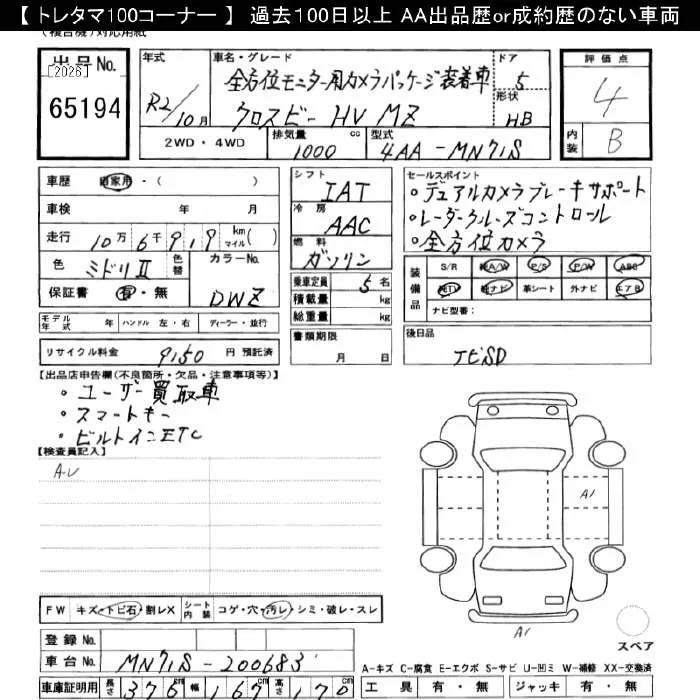 【 トレタマ100コーナー 】 過去100日以上 AA出品歴or成約歴のない車両
(複合機)対応用紙
出品No.
[2026]
65194
年式
R2/10月
車名・グレード
全方位モニター用カメラパッケージ装着車
クロスビー HV MZ
ドア
5
形状
HB
評価点
4
内装
B
2WD・4WD
排気量
1000 cc
型式
4AA-MN71S
車歴 自家用・( )
車検 年 月
走行 10万6千919 km マイル( )
色 ミドリII 色替
カラーNo.
DWZ
保証書 有・無
シフト
IAT
冷房
AAC
燃料
ガソリン
乗車定員 5 名
積載量 kg
総重量 kg
セールスポイント
・デュアルカメラブレーキサポート
・レーダークルーズコントロール
・全方位カメラ
装備品
S/R 純A/W P/S P/W ABS
純TV 純ナビ 革シート 外ナビ エアB
ナビ型番:
モデル年式 年 ハンドル 左・右 ディーラー・並行
リサイクル料金 9150 円 預託済
書類期限
月 日
後日品
ナビSD
【出品店申告欄(不良箇所・欠品・注意事項等)】
・ユーザー買取車
・スマートキー
・ビルトインETC
【検査員記入】
A1
A1
スペア
FW キズ・トビ石・割レX シート内装 コゲ・穴・汚レ・シミ・破レ・スレ
登録No.
車台No. MN71S-200683
A-キズ C-腐食 E-エクボ S-サビ U-凹ミ W-補修 XX-交換済
車庫証明用 長さ 376 幅 167 高さ 170
工具 有・無 ジャッキ 有・無